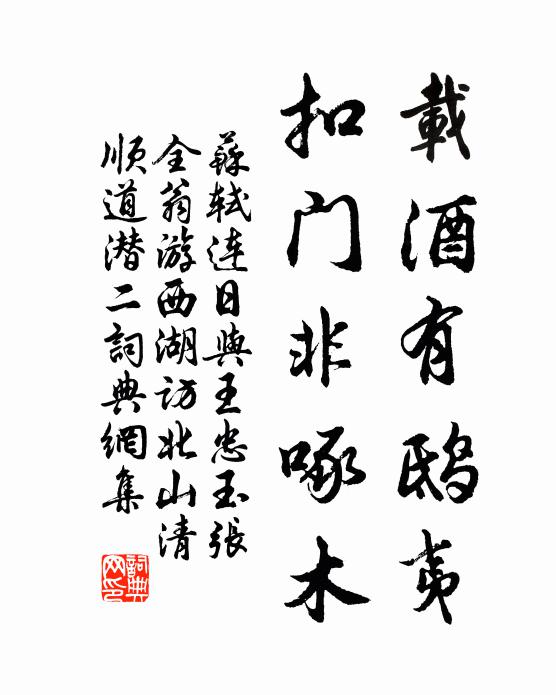 載酒有鴟夷
扣门非啄木
蘇軾连日與王忠玉張
全翁游西湖访北山清
顺道潜二詞典網集
詞典网印